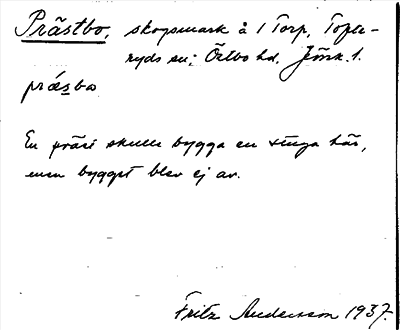 Prästbo, skogsmark å 1 Torp, Tofte-
ryds sn; Östbo hd, Jönk. l.
präsbo
En präst skulle bygga en stuga här,
men bygget blev ej av.
Fritz Andersson 1937.